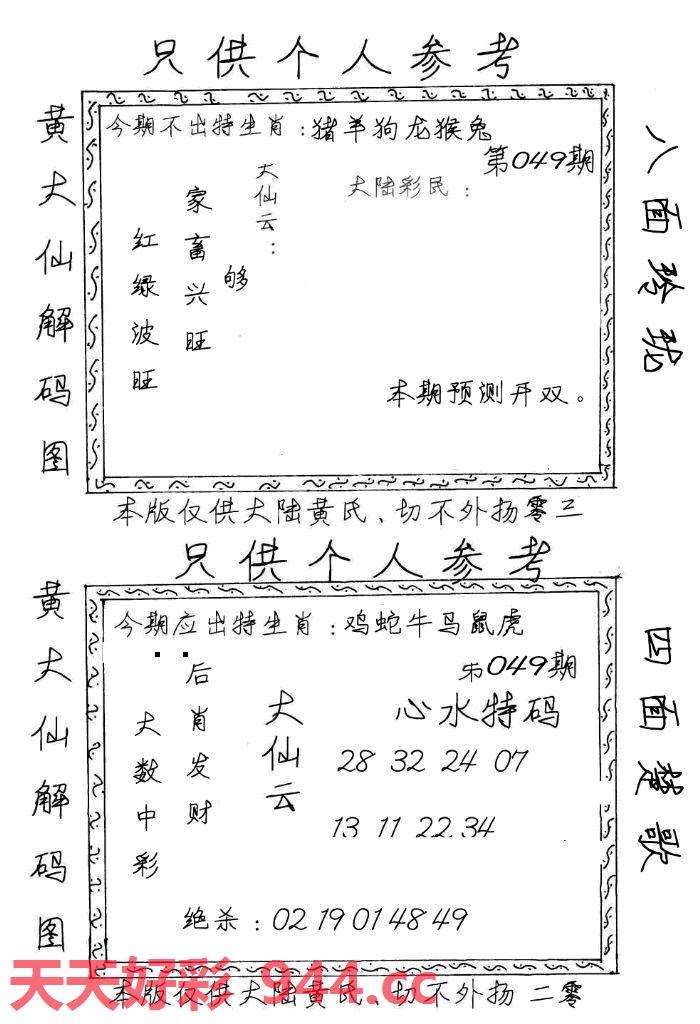 只供个人参考
黄大仙解码图
今期不出特生肖：猪羊狗龙猴兔
第049期
大陆彩民：
大仙云：
够
家畜兴旺
红绿波旺
本期预测开双。
八面玲珑
本版仅供大陆黄氏、切不外扬零三
只供个人参考
黄大仙解码图
今期应出特生肖：鸡蛇牛马鼠虎
第049期
心水特码
大仙云
后肖发财
大数中彩
28 32 24 07
13 11 22.34
绝杀：02 19 01 48 49
四面楚歌
天天好彩 944.cc
本版仅供大陆黄氏、切不外扬 二零